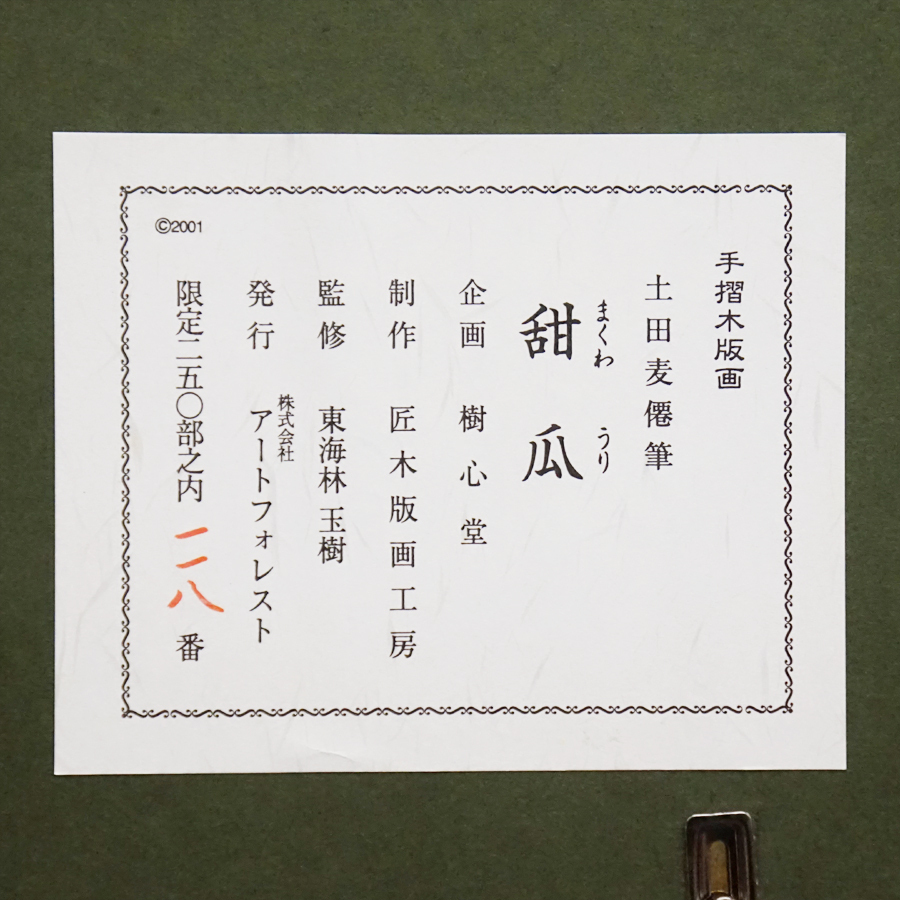 手摺木版画
土田麦僊筆
甜瓜
まくわ うり
企画 樹心堂
制作 匠木版画工房
監修 東海林玉樹
発行 株式会社 アートフォレスト
限定二五〇部之内 一一八 番
©2001